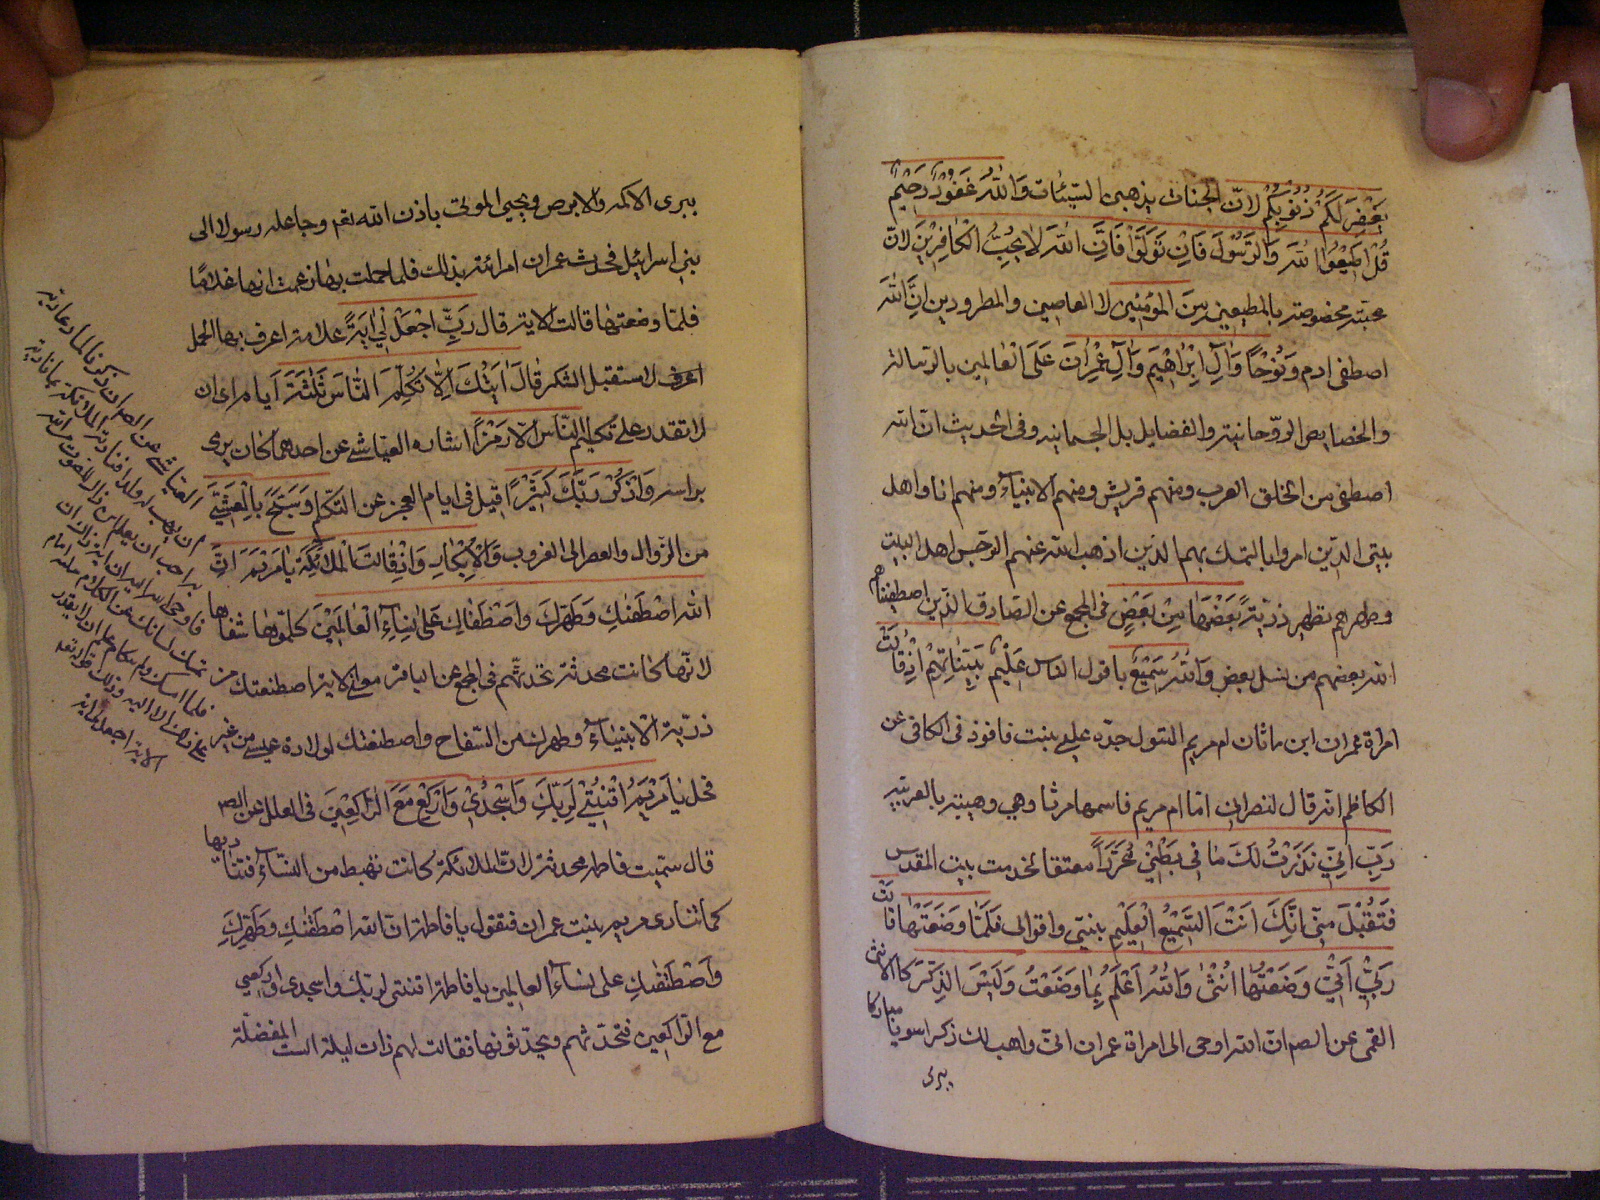 يَغْفِرْ لَكُمْ ذُنُوبَكُمْ لانّ الحسنات يذهبن السيّئات وَاللّٰهُ غَفُورٌ رَحِيمٌ
قُلْ اَطِيعُوا اللّٰهَ وَالرَّسُولَ فَاِنْ تَوَلَّوْا فَاِنَّ اللّٰهَ لٰا يُحِبُّ الْكٰافِرِينَ لانّ
محبته مخصوصة بالمطيعين من المؤمنين لا العاصين والمطرودين اِنَّ اللّٰهَ
اصطفى ادم وَنُوحًا وَاٰلَ اِبْرٰاهِيمَ وَاٰلَ عِمْرٰانَ عَلَى الْعٰالَمِينَ بالرسالة
والخصايص الروحانية والفضايل بل الجسمانيه وفى الحديث ان الله
اصطفى من الخلق العرب ومنهم قريش ومنهم الانبياء ومنهم انا واهل
بيتى الذين امروا بالتمسك بهم الذين اذهب الله عنهم الرجس اهل البيت
وطهرهم تطهير ذرّيّةً بَعْضُهٰا مِنْ بَعْضٍ فى المجمع عن الصّادق الذين اصطفاهم
الله بعضهم من نسل بعض وَاللّٰهُ سَمِيعٌ باقوال الناس عَلِيمٌ بنيّاتهم اِذْ قٰالَتْ
امراة عمران ابن ماثان ام مريم البتول جدّه عيسى بنت فاقوذ فى الكافى عن
الكاظم انه قال لنصرانى اما ام مريم فاسمها مرثا وهى وهيبة بالعربيه
رَبِّ اِنِّي نَذَرْتُ لَكَ مٰا فِى بَطْنِي مُحَرَّراً معتقا لخدمت بيت المقدس
فَتَقَبَّلْ مِنّى اِنَّكَ اَنْتَ السَّمِيعُ الْعَلِيمُ بنيتى واقوالى فَلَمّٰا وَضَعَتْهٰا قٰالَتْ
رَبِّ اِنِّي وَضَعْتُهٰا اُنْثىٰ وَاللّٰهُ اَعْلَمُ بِمٰا وَضَعَتْ وَلَيْسَ الذَّكَرُ كَالْاُنْثىٰ
القمى عن الصم ان الله اوحى الى امراة عمران انى واهب لك ذكرا سويا مباركا
يبرى
يبرى الاكمه والابرص ويحيى الموتى باذن الله نعم وجاعله رسولا الى
بنى اسرائيل فحدث عمران امرائته بذلك فلما حملت بها زعمت انها غلامًا
فلمّا وضعتها قالت الاية قال رَبِّ اجْعَلْ لِي اٰيَةً علامة اعرف بها الحمل
اعرف لاستقبل الشكر قٰالَ اٰيَتُكَ اَلّٰا تُكَلِّمَ النّٰاسَ ثَلٰثَةَ اَيّٰام اى ان
لا تقدر على تكليم النّاس اِلّٰا رَمْزاً اشاره العياشى عن احدهما كان يومى
براسه وَاذْكُرْ رَبَّكَ كَثِيرًا قيل فى ايام العجز عن التكلم وَسَبِّحْ بِالْعَشِيِّ
من الزّوال والعصر الى الغروب وَالْاِبْكٰارِ وَاِذْ قٰالَتِ الْمَلٰئِكَةُ يٰا مَرْيَمُ اِنَّ
اللّٰهَ اصْطَفٰيكِ وَطَهَّرَكِ وَاصْطَفٰاكِ عَلىٰ نِسٰاءِ الْعٰالَمِينَ كلموها شفاها
لانّها كانت محدثة تحدثهم فى المجمع عن الباقر معنى الاية اصطفيتك من
ذرّية الانبياء وطهرك من السفاح واصطفيك لولادة عيسى من غير
فحل يٰا مَرْيَمُ اقْنُتِي لِرَبِّكِ وَاسْجُدِي وَارْكَعِي مَعَ الرّٰاكِعِينَ فى العلل عن الصم
قال سمّيت فاطمه محدثة لانّ الملائكة كانت تهبط من السّماء فتناديها
كما تنادى مريم بنت عمران فتقول يا فاطمة ان الله اصْطَفٰيكِ وَطَهَّرَكِ
وَاصْطَفٰيكِ على نساء العالمين يا فاطمة اقنتى لربّك واسجدى واركعى
مع الرّاكعين فتحدّثهم ويحدّثونها فقالت لهم ذات ليلة الست المفضلة
العياشى عن الصم ان زكريا لما دعا ربه
ان يهب له ولدا فنادته الملائكة بما نادته
به احب ان يعلم ان ذلك الصوت من الله
فاوحى اليه ان اية ذلك ان
يمسك لسانه عن الكلام ثلثه ايام
فلما امسك ولم يتكلم علم انه لا يقدر
على ذلك الا الله وذلك قوله تعه
الاية اجعل لى اية